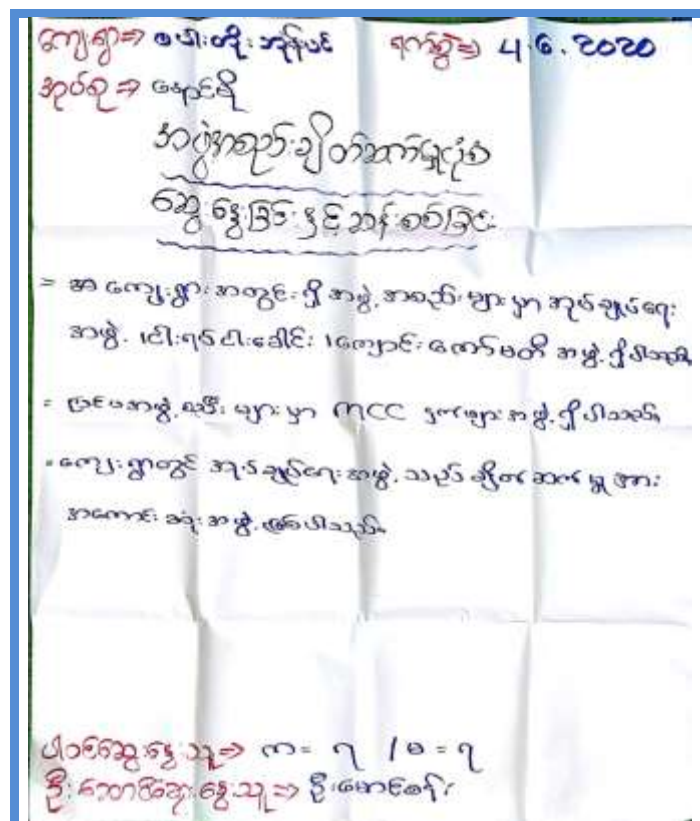 ကျေးရွာ⇒ စပါးတိုး အုန်ပင် ရက်စွဲ⇒ 4.6.2020
အုပ်စု ⇒ ညောင်ချို
အဖွဲ့အစည်းချိတ်ဆက်မှုပုံစံ
ဆွေးနွေးခြင်းနှင့် ဆန်းစစ်ခြင်း
= အကျေးရွာအတွင်းရှိ အဖွဲ့အစည်းများမှာ အုပ်ချုပ်ရေး
အဖွဲ့ ၊ ငါး ၊ကျောင်းကော်မတီ အဖွဲ့ ရှိပါသည်။
= ပြင်ပအဖွဲ့စည်း များမှာ MCC အဖွဲ့ ရှိပါသည်။
= ကျေးရွာတွင် အုပ်ချုပ်ရေးအဖွဲ့သည် ချိတ်ဆက်မှု အား
အကောင်းဆုံးအဖွဲ့ ဖြစ်ပါသည်။
ပါဝင်ဆွေးနွေးသူ⇒ ကျ= ၇ / မ = ၇
ဦးဆောင်ဆွေးနွေးသူ⇒ ဦးမောင်စန်း